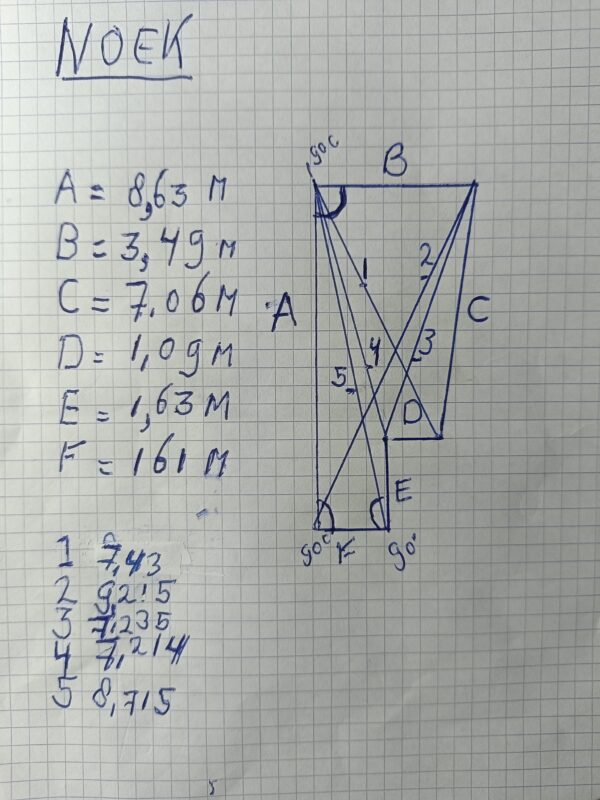 NOEK
A = 8,63 м
B = 3,49 м
C = 7.06 м
D = 1,09 м
E = 1,63 м
F = 161 м
1 7,43
2 9,215
3 7,235
4 7,214
5 8,715
90°
B
1
2
A
C
4
3
5
D
E
90°
F
90°